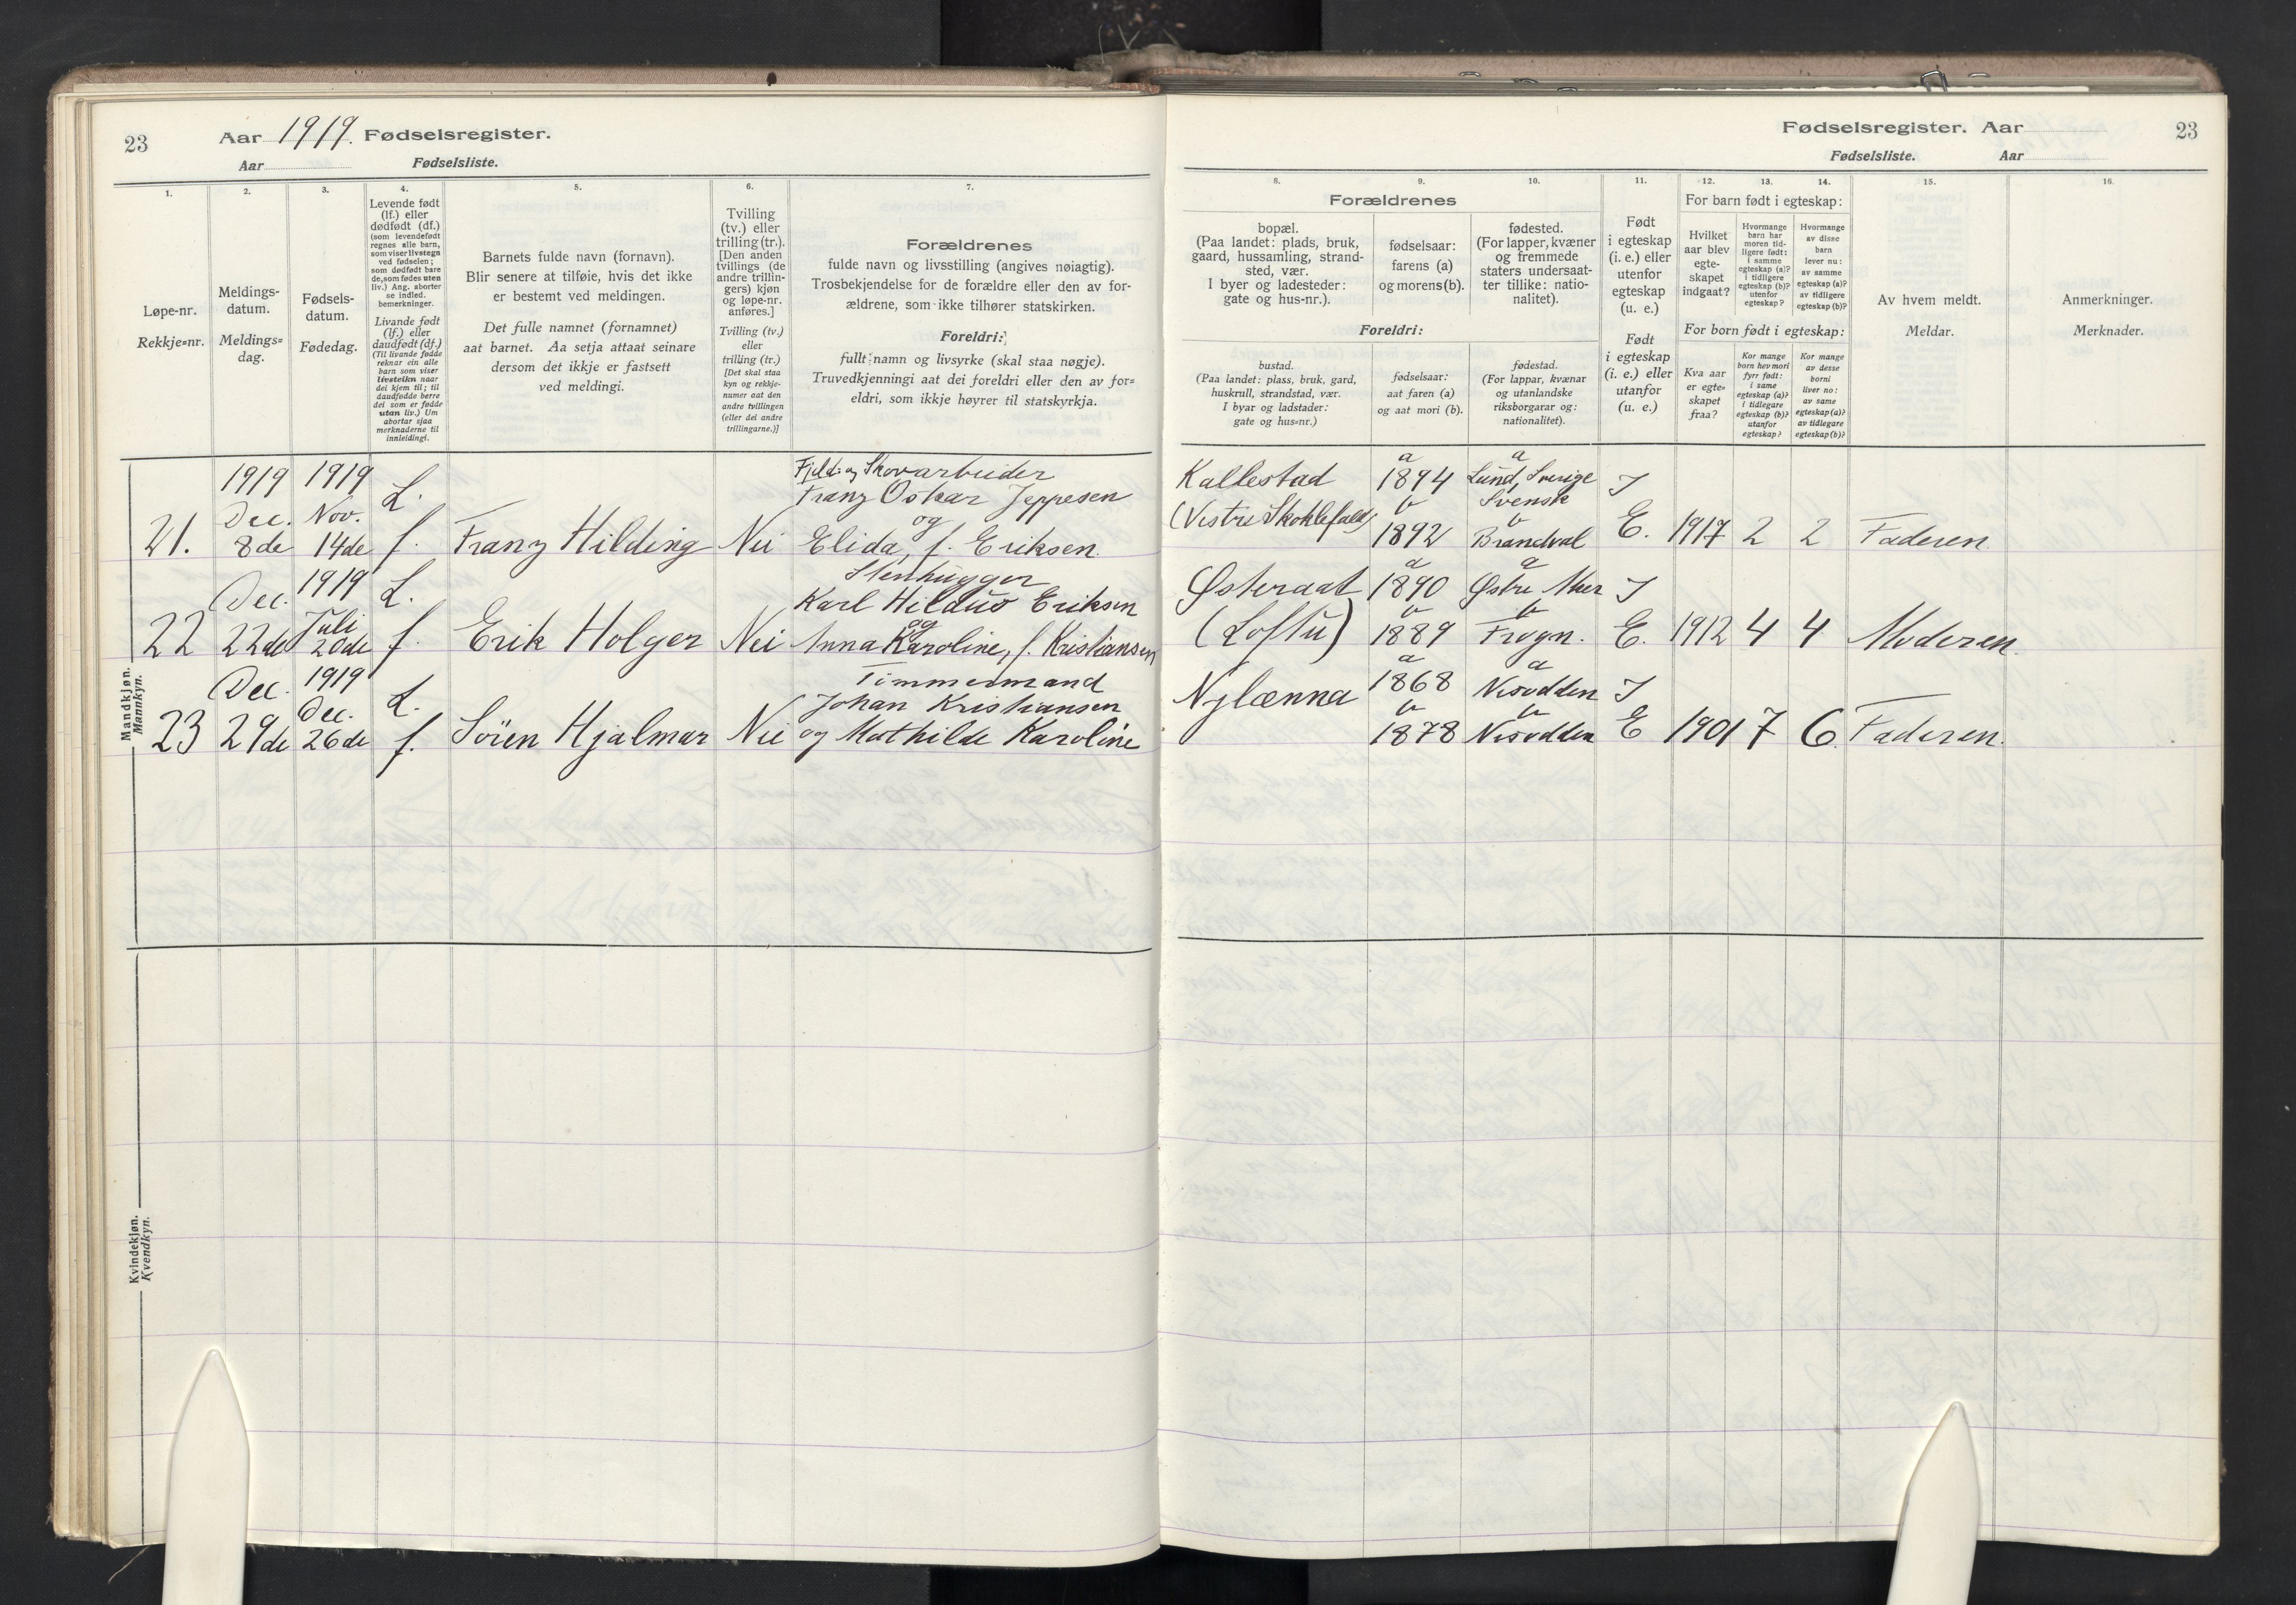 23
Aar 1919. Fødselsregister.
Aar Fødselsliste.
1. 2. 3. 4. 5. 6. 7.
Løpe-nr.
Rekkje=nr.
Meldings-
datum.
Meldings=
dag.
Fødsels-
datum.
Fødedag.
Levende født
(lf.) eller
dødfødt (df.)
(som levendefødt
regnes alle barn,
som viser livstegn
ved fødselen;
som dødfødt bare
de, som fødes uten
liv.) Ang. aborter
se indled.
bemerkninger.
Livande født
(lf.) eller
daudfødt (df.)
(Til livande fødde
reknar ein alle
barn som viser
livsteikn naar
dei kjem til; til
daudfødde berre
dei som er fødde
utan liv.) Um
abortar sjaa
merknaderne til
innleidingi.
Barnets fulde navn (fornavn).
Blir senere at tilføie, hvis det ikke
er bestemt ved meldingen.
Det fulle namnet (fornamnet)
aat barnet. Aa setja attaat seinare
dersom det ikkje er fastsett
ved meldingi.
Tvilling
(tv.) eller
trilling (tr.).
[Den anden
tvillings (de
andre trillin-
gers) kjøn
og løpe-nr.
anføres.]
Tvilling (tv.)
eller
trilling (tr.)
[Det skal staa
kyn og rekkje-
numer aat den
andre tvillingen
(eller dei andre
trillingarne.)]
Forældrenes
fulde navn og livsstilling (angives nøiagtig).
Trosbekjendelse for de forældre eller den av for-
ældrene, som ikke tilhører statskirken.
Foreldri:
fullt namn og livsyrke (skal staa nøgje).
Truvedkjenningi aat dei foreldri eller den av for=
eldri, som ikkje høyrer til statskyrkja.
Mandkjøn.
Mannkyn.
1919 1919 L. Fjeld- og Skovarbeider
Dec. Nov. Franz Oskar Jeppesen
og
21. 8de 14de f. Franz Hilding Nei Elida, f. Eriksen.
Dec. 1919 L. Stenhugger
Juli Karl Hildus Eriksen
og
22 22de 20de f. Erik Holger Nei Anna Karoline, f. Kristiansen
Dec. 1919 L. Timmermand
Dec. Johan Kristiansen
23 29de 26de f. Sören Hjalmar Nei og Mathilde Karoline
Kvindekjøn.
Kvendkyn.
Fødselsregister. Aar 23
Fødselsliste. Aar
8. 9. 10. 11. 12. 13. 14. 15. 16.
Forældrenes
bopæl.
(Paa landet: plads, bruk,
gaard, hussamling, strand-
sted, vær.
I byer og ladesteder:
gate og hus-nr.).
fødselsaar:
farens (a)
og morens (b).
fødested.
(For lapper, kvæner
og fremmede
staters undersaat-
ter tillike: natio-
nalitet).
Foreldri:
bustad.
(Paa landet: plass, bruk, gard,
huskrull, strandstad, vær.
I byar og ladstader:
gate og hus=nr.)
fødselsaar:
aat faren (a)
og aat mori (b).
fødestad.
(For lappar, kvænar
og utanlandske
riksborgarar og:
nationalitet).
Født
i egteskap
(i. e.) eller
utenfor
egteskap
(u. e.)
Født
i egteskap
(i. e.) eller
utanfor
(u. e.)
For barn født i egteskap:
Hvilket
aar blev
egte-
skapet
indgaat?
Hvormange
barn har
moren tid-
ligere født:
i samme
egteskap (a)?
i tidligere
egteskap (b)?
utenfor
egteskap?
Hvormange
av disse
barn
lever nu:
av samme
egteskap (a)?
av tidligere
egteskap (b)?
For born født i egteskap:
Kva aar
er egte=
skapet
fraa?
Kor mange
born hev mori
fyrr født:
i same
egteskap (a)?
i tidlegare
egteskap (b)?
utanfor
egteskap?
Kor mange
av desse
borni
liver no:
av same
egteskap (a)?
av tidlegare
egteskap (b)?
Av hvem meldt.
Meldar.
Anmerkninger.
Merknader.
a a
Kallestad 1894 Lund, Sverige I
(Vestre) b Svensk
b
1892 Brandval E. 1917 2 2 Faderen.
a a
Østeraat 1890 Østre I
b b
(Loftu) 1889 Frogn. E. 1912 4 4 Moderen.
a a
Nylænna 1868 Nesodden I
b b
1878 Nesodden E 1901 7 6 Faderen.